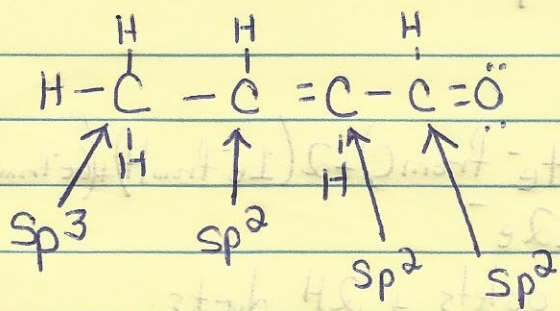 H H H
H – C – C = C – C = O
H H
Sp³ Sp² Sp² Sp²